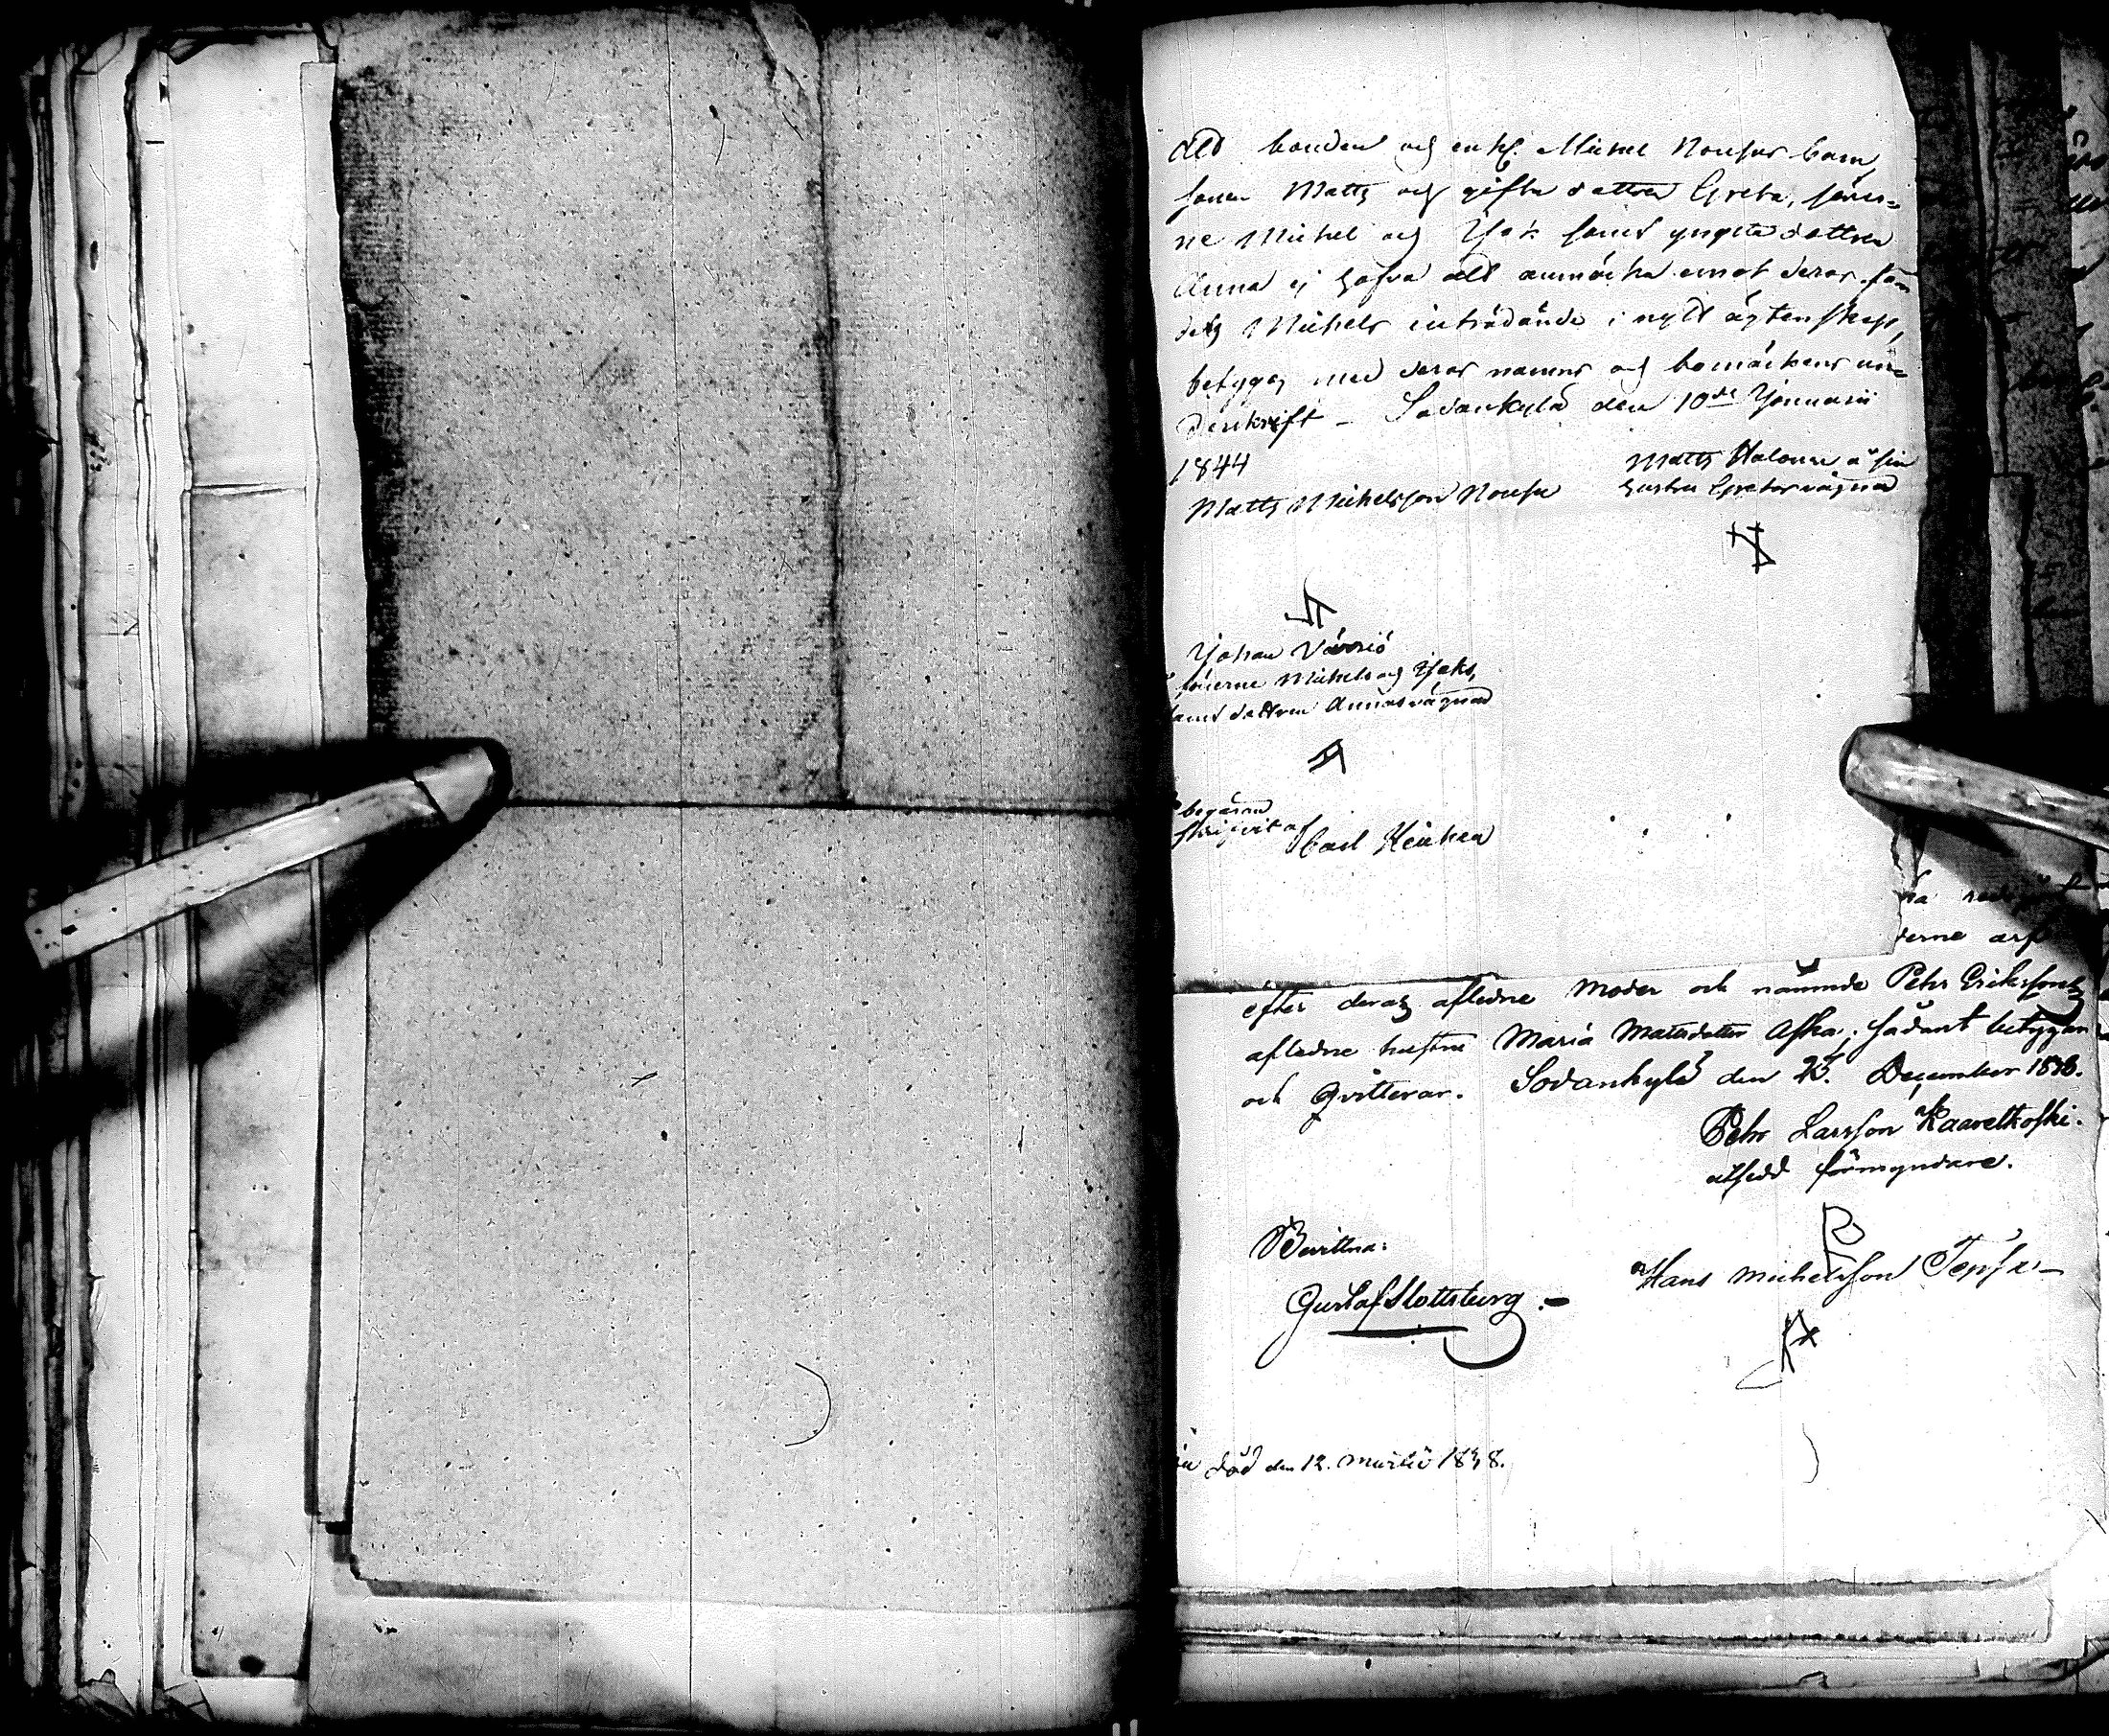 Att bonden och enkl. Michel Nousus barn,
sonen Matts och gifta dottren Greta, söner-
ne Michel och Isak samt yngsta dottren
Anna ej hafva att anmärka emot deras fa-
ders Michels inträdande i nytt ägtenskap,
betygas med deras namns och bomärkens un-
derskrift – Sodankylä den 10de Januarii
1844
Matts Michelsson Nousu
Matts Halonen å sin
hustru Gretas vägnar
Johan Värriö
sönerne Michels och Isaks,
samt dottren Annas vägnar
begäran
skrifvit af Carl Heikea
derne arf
efter deras aflidne Moder och nämnde Pehr Erikssons
aflidne hustru Maria Matsdotter Aska; sådant betygar
och qvitterar. Sodankylä den 25. December 1836.
Pehr Larsson Kaaretkoski.
utsedd förmyndare.
Bevittna:
Gustaf Slottsberg.
Hans Michelsson Tepsa
död den 12. Martii 1838.